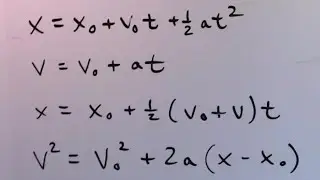 x = x₀ + v₀t + ½at²
v = v₀ + at
x = x₀ + ½(v₀ + v)t
v² = v₀² + 2a(x - x₀)